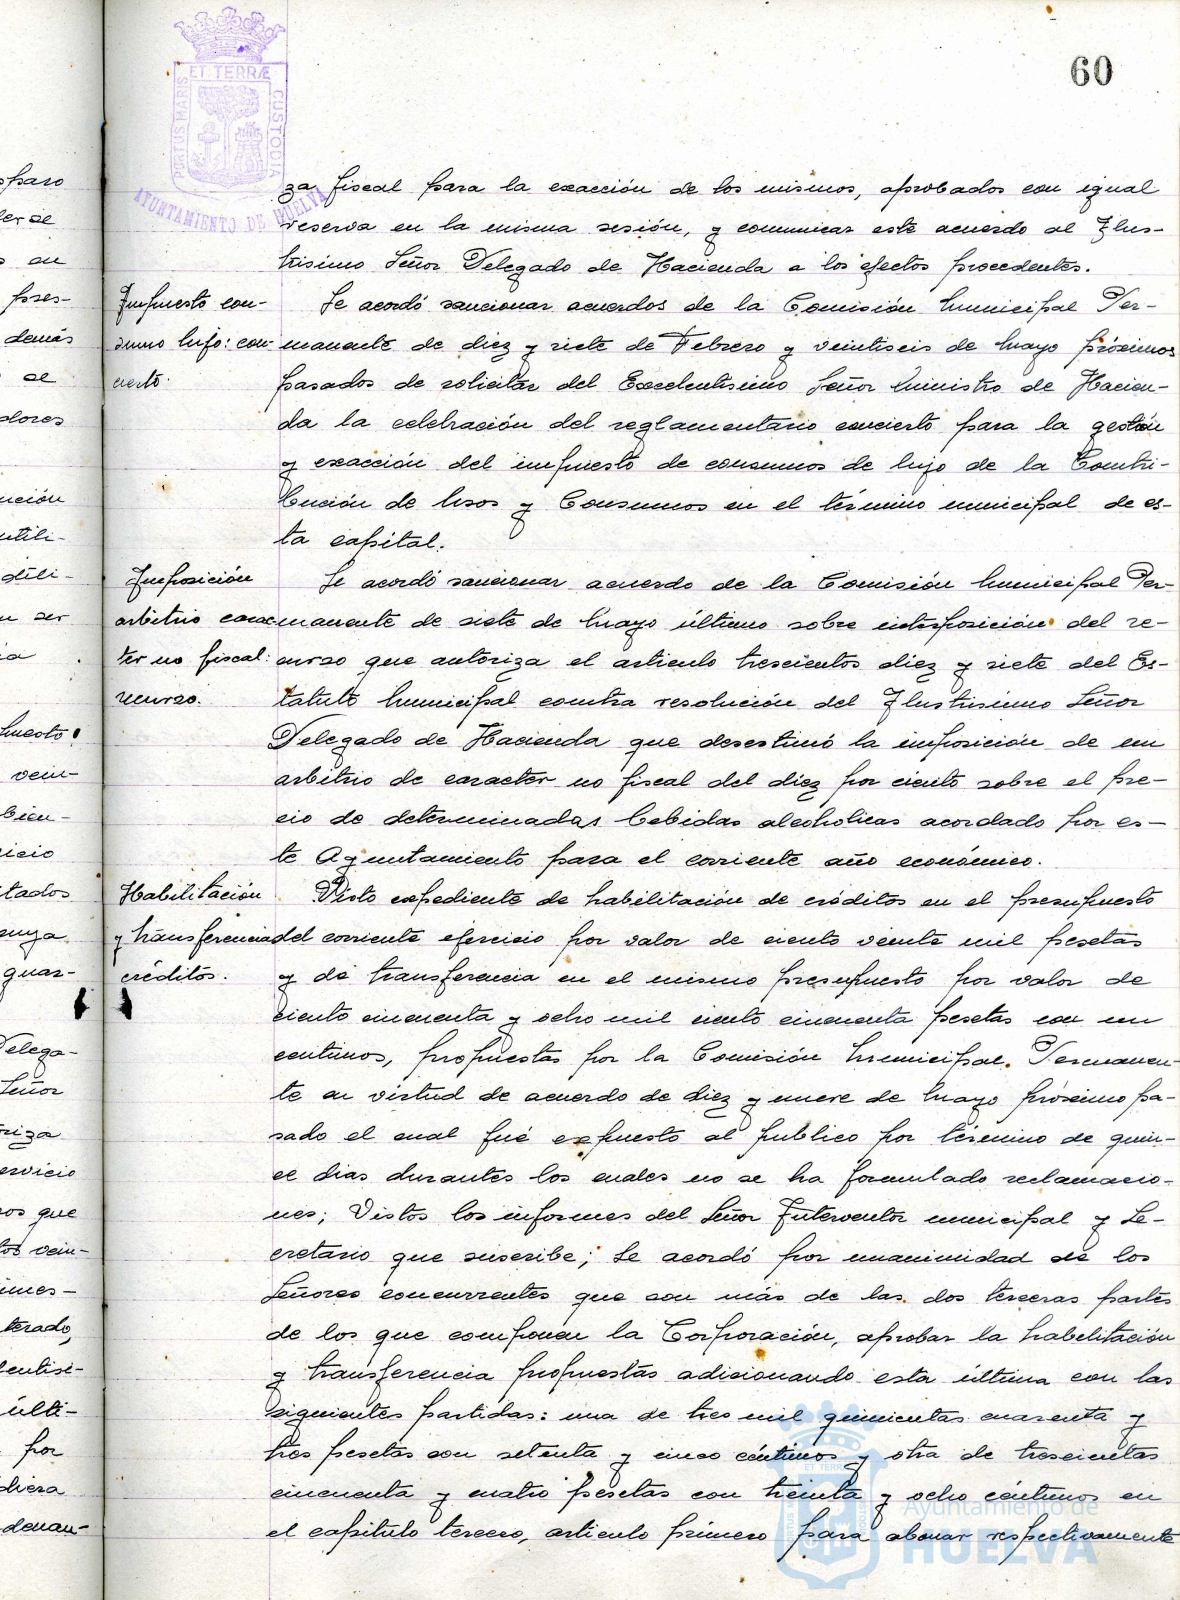 60
PORTUS MARIS ET TERRÆ CUSTODIA
AYUNTAMIENTO DE HUELVA
za fiscal para la exacción de los mismos, aprobados con igual
reserva en la misma sesión, y comunicar este acuerdo al Ilus-
trisimo Señor Delegado de Hacienda a los efectos procedentes.
Impuesto con-
sumo lujo: con-
cierto.
Se acordó sancionar acuerdos de la Comisión Municipal Per-
manente de diez y siete de Febrero y veintiseis de Mayo próximos
pasados de solicitar del Excelentisimo Señor Ministro de Hacien-
da la celebración del reglamentario concierto para la gestión
y exacción del impuesto de consumos de lujo de la Contri-
bución de Usos y Consumos en el término municipal de es-
ta capital.
Imposición
arbitrio carac
ter no fiscal:
recurso.
Se acordó sancionar acuerdo de la Comisión Municipal Per-
manente de siete de Mayo último sobre interposición del re-
curso que autoriza el articulo trescientos diez y siete del Es-
tatuto Municipal contra resolución del Ilustrisimo Señor
Delegado de Hacienda que desestimó la imposición de un
arbitrio de caracter no fiscal del diez por ciento sobre el pre-
cio de determinadas bebidas alcoholicas acordado por es-
te Ayuntamiento para el corriente año económico.
Habilitación
y transferencia
créditos.
Visto expediente de habilitación de créditos en el presupuesto
del corriente ejercicio por valor de ciento veinte mil pesetas
y de transferencia en el mismo presupuesto por valor de
ciento cincuenta y ocho mil ciento cincuenta pesetas con un
centimos, propuestas por la Comisión Municipal. Permanen-
te en virtud de acuerdo de diez y nueve de Mayo próximo pa-
sado el cual fué expuesto al publico por término de quin-
ce dias durantes los cuales no se ha formulado reclamacio-
nes; Vistos los informes del Señor Interventor municipal y Se-
cretario que suscribe; Se acordó por unanimidad de los
Señores concurrentes que son más de las dos terceras partes
de los que componen la Corporación, aprobar la habilitación
y transferencia propuestas adicionando esta última con las
siguientes partidas: una de tres mil quinientas cuarenta y
tres pesetas con setenta y cinco céntimos y otra de trescientas
cincuenta y cuatro pesetas con treinta y ocho céntimos en
el capitulo tercero, articulo primero para abonar respectivamente
Ayuntamiento de
HUELVA